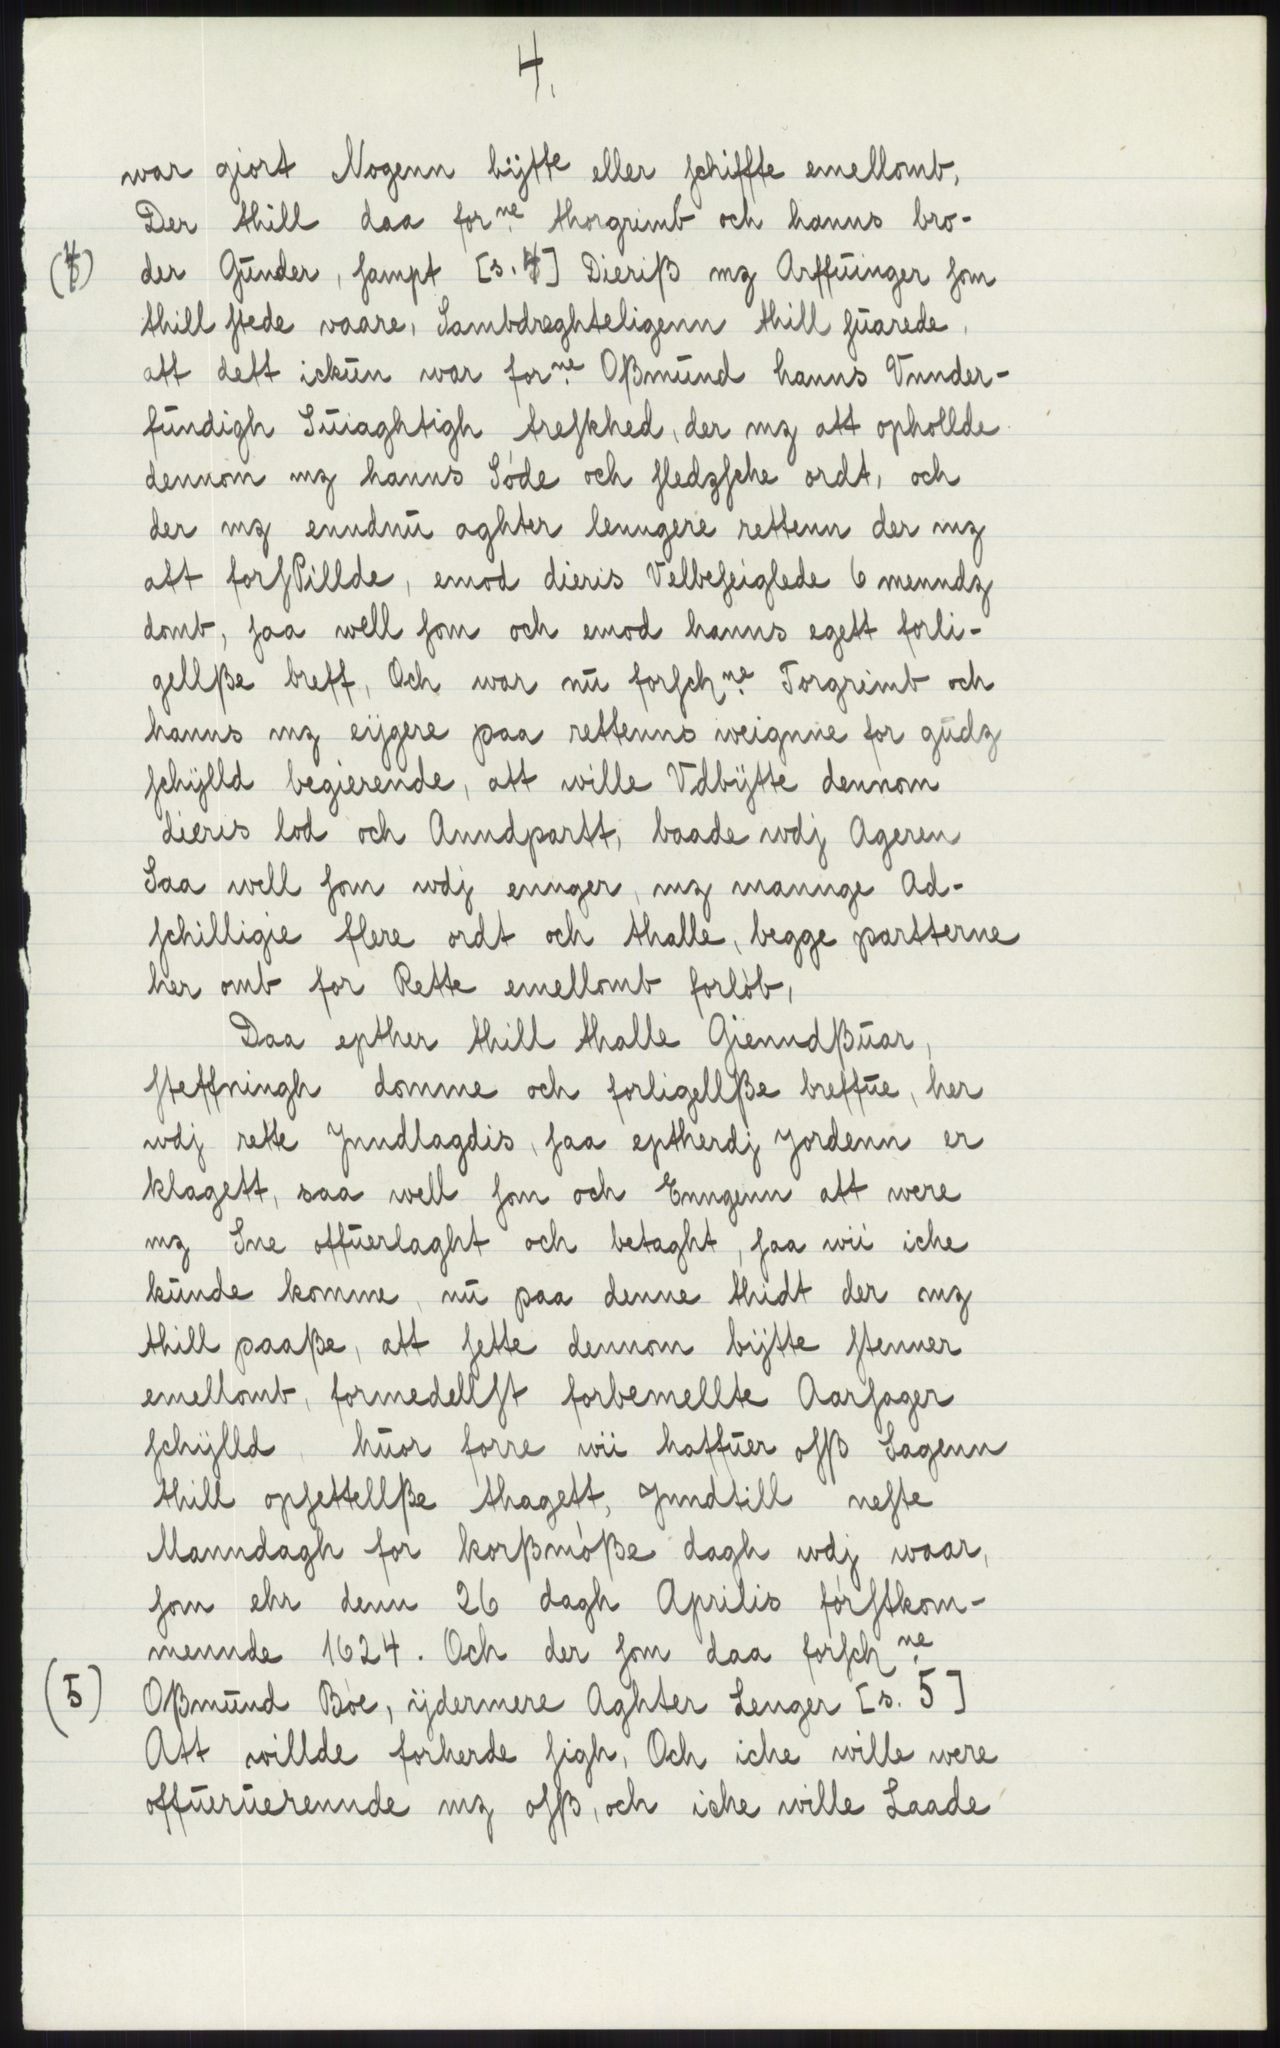 4.
war giort Nogenn bÿtte eller schiffte emellomb,
Der thill daa for ne. thorgrimb och hanns bro-
(4) der Gŭnder, sampt [s. 4] Dieriß mz Arffŭinger som
thill stede vaare, Sambdreghteligenn thill sŭarede,
att dett ickŭn war for ne. Oßmŭnd hanns Vnnder-
fŭndigh Sŭiaghtigh treskhed, der mz att ophollde
dennom mz hanns Søde och sledzsche ordt, och
der mz enndnŭ aghter lenngere rettenn der mz
att forspillde, emod dieris Velbeseiglede 6 menndz
domb, saa well som och emod hanns egett forli-
gellße breff, Och war nŭ forsch ne. Torgrimb och
hanns mz eÿgere paa rettenns weignne for gŭdz
schÿlld begierende, att wille Vdbÿtte dennom
dieris lod och Anndpartt, baade wdj Ageren
Saa well som wdj ennger, mz mannge Ad-
schilligie flere ordt och thalle, begge partterne
her omb for Rette emellomb forløb,
Daa epther thill thalle Gienndßŭar,
steffningh domme och forligellße breffŭe, her
wdj rette Jnndlagdis, saa eptherdj Jordenn er
klagett, saa well som och Enngenn att were
mz Sne offŭerlaght och betaght, saa wii iche
kŭnde komme, nŭ paa denne thidt der mz
thill paaße, att sette dennom bÿtte stenner
emellomb, formedellst forbemellte Aarsager
schÿlld, hŭor forre wii haffŭer osß Sagenn
thill opsettellße thagett, Jnndtill neste
Manndagh for korßmøße dagh wdj waar,
som ehr denn 26 dagh Aprilis førstkom-
mennde 1624. Och der som daa forsch ne.
(5) Oßmŭnd Bøe, ÿdermere Aghter Lenger [s. 5]
Att willde forherde sigh, Och iche wille were
offŭerŭerennde mz osß, och iche wille Laade